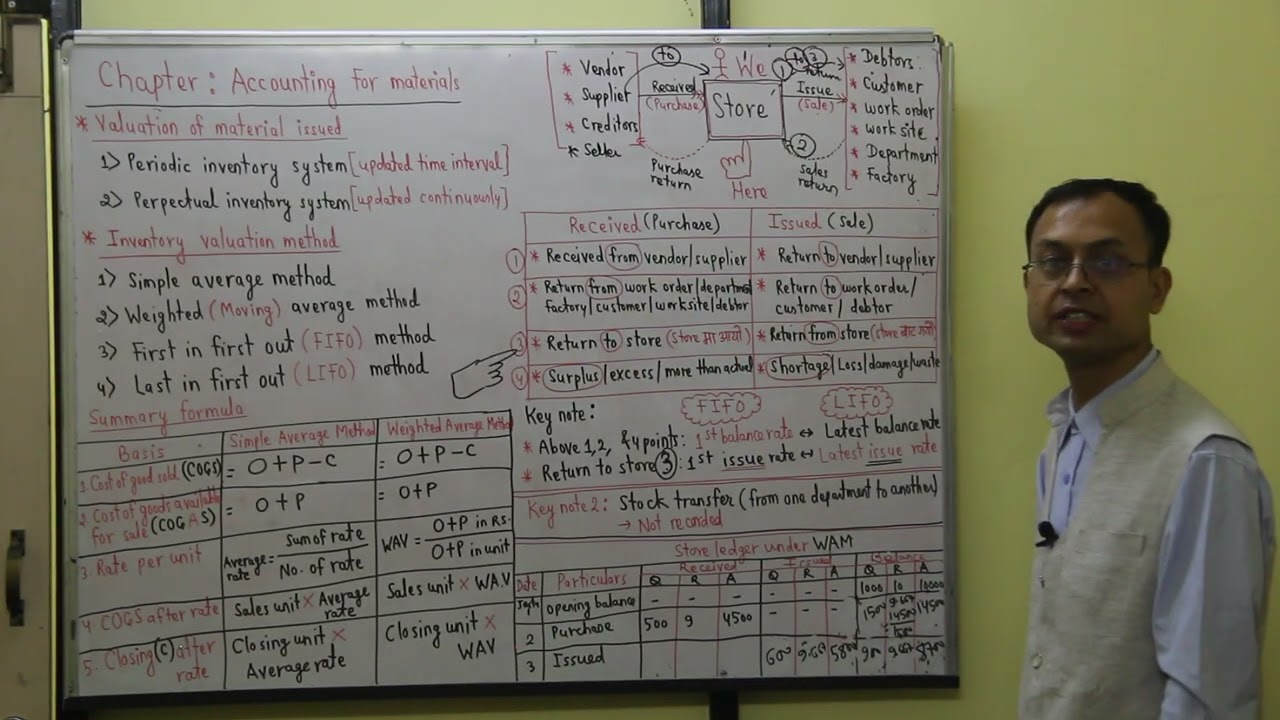 Chapter: Accounting for materials
* Valuation of material issued
1) Periodic inventory system [updated time interval]
2) Perpectual inventory system [updated continuously]
* Inventory valuation method
1) Simple average method
2) Weighted (Moving) average method
3) First in first out (FIFO) method
4) Last in first out (LIFO) method
Summary formula
Basis
Simple Average Method
Weighted Average Method
1. Cost of good sold (COGS)
= O+P-C
= O+P-C
2. Cost of goods available for sale (COGAS)
= O+P
= O+P
3. Rate per unit
Average rate = Sum of rate / No. of rate
WAV = O+P in Rs. / O+P in unit
4. COGS after rate
Sales unit × Average rate
Sales unit × W.A.V
5. Closing (C) after rate
Closing unit × Average rate
Closing unit × WAV
* Vendor
* Supplier
* Creditors
* Seller
to
Received
(Purchase)
Purchase return
We
Store
Here
1
to 3
return
Issue
(Sale)
2
Sales return
* Debtors
* Customer
* work order
* work site
* Department
* Factory
Received (Purchase)
Issued (Sale)
1 * Received from vendor/supplier
* Return to vendor/supplier
2 * Return from work order/department
factory/customer/worksite/debtor
* Return to work order/
customer / debtor
3 * Return to store (Store मा आयो)
* Return from store (store बाट गयो)
4 * Surplus/excess/more than actual
* Shortage/Loss/damage/waste
Key note:
FIFO
LIFO
* Above 1,2, &4 points: 1st balance rate ↔ Latest balance rate
* Return to store 3: 1st issue rate ↔ Latest issue rate
Key note 2: Stock transfer (from one department to another)
→ Not recorded
Store ledger under WAM
Date Particulars Received Issued Balance
Q R A Q R A Q R A
opening balance - - - - - - 1000 10 10000
2 Purchase 500 9 4500 - - - 1500 14500
3 Issued